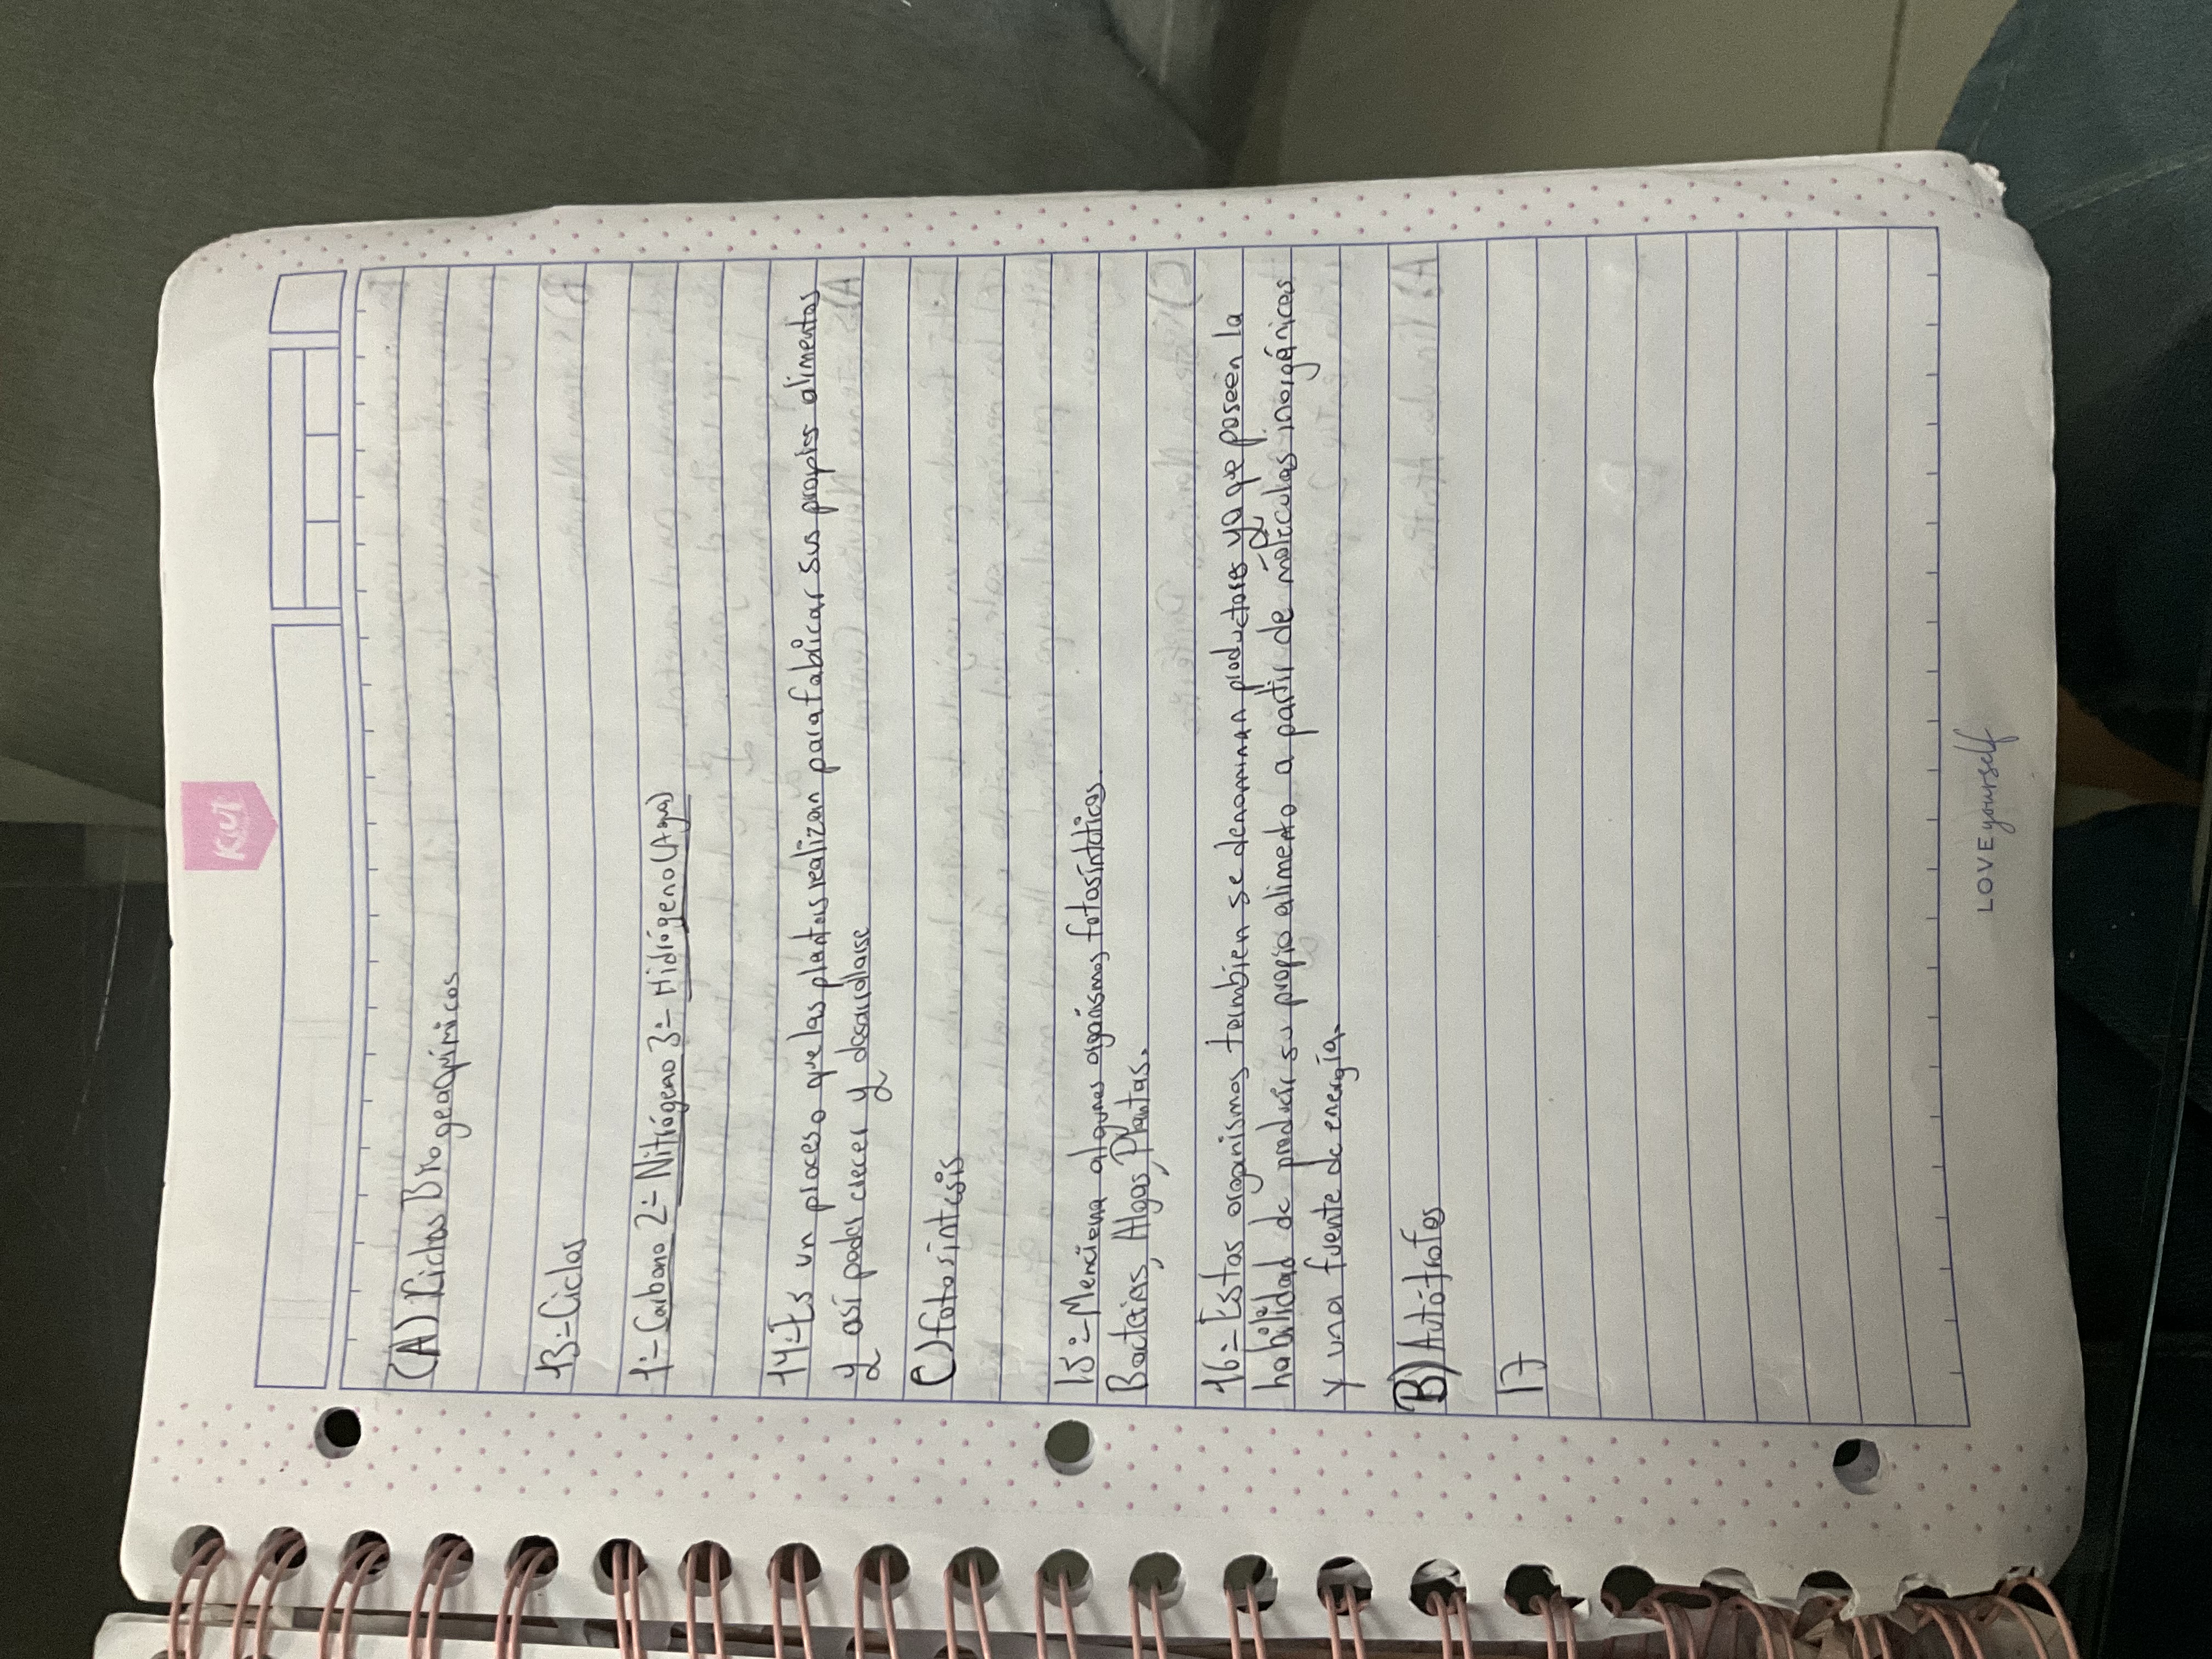 Kiut
(A) Ciclos Biogeoquímicos
13=Ciclos
1=Carbono 2=Nitrógeno 3=Hidrógeno (Agua)
14=Es un proceso que las plantas realizan para fabricar sus propios alimentos
y así poder crecer y desarrollarse
C) fotosíntesis
15=Menciona algunos organismos fotosintéticos.
Bacterias, Algas, Plantas.
16=Estos organismos tambien se denominan productores ya que poseen la
habilidad de producir su propio alimento a partir de moléculas inorgánicas
y una fuente de energía.
B) Autótrofos
17
LOVE yourself